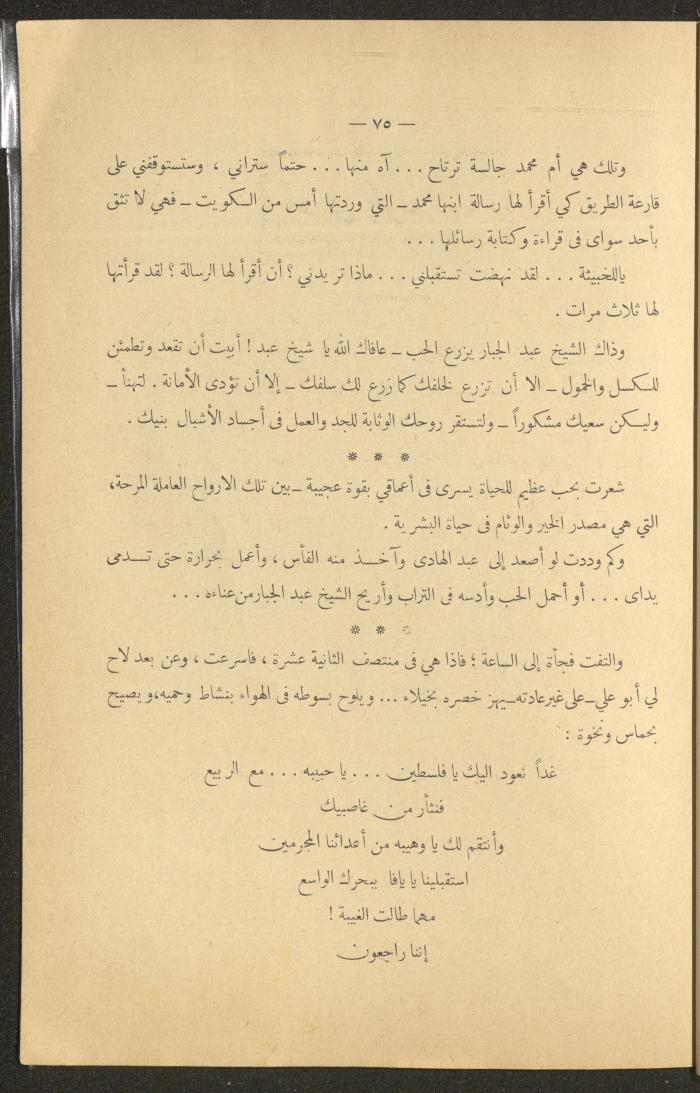 — ٧٥ —
وتلك هي أم محمد جالسة ترتاح . . . آه منها . . . حتماً ستراني ، وستستوقفني على
قارعة الطريق كي أقرأ لها رسالة ابنها محمد ــ التي وردتها أمس من الكويت ــ فهي لا تثق
بأحد سواى فى قراءة وكتابة رسائلها . . .
ياللخبيثة . . . لقد نهضت تستقبلني . . . ماذا تريدني ؟ أن أقرأ لها الرسالة ؟ لقد قرأتها
لها ثلاث مرات .
وذاك الشيخ عبد الجبار يزرع الحب ــ عافاك الله يا شيخ عبد ! أبيت أن تقعد وتطمئن
للكسل والخمول ــ الا أن تزرع لخلفك كما زرع لك سلفك ــ إلا أن تؤدى الأمانة . لتهنأ ــ
وليكن سعيك مشكوراً ــ ولتستقر روحك الوثابة للجد والعمل فى أجساد الأشبال بنيك .
* * *
شعرت بحب عظيم للحياة يسرى فى أعماقي بقوة عجيبة ــ بين تلك الارواح العاملة المرحة،
التي هي مصدر الخير والوئام فى حياة البشرية .
وكم وددت لو أصعد إلى عبد الهادى وآخذ منه الفأس ، وأعمل بحرارة حتى تدمى
يداى . . . أو أحمل الحب وأدسه فى التراب وأريح الشيخ عبد الجبار من عناءه . . .
* * *
والتفت فجأة إلى الساعة ؛ فاذا هي فى منتصف الثانية عشرة ، فاسرعت ، وعن بعد لاح
لي أبو علي ــ على غير عادته ــ يهز خصره بخيلاء ... ويلوح بسوطه فى الهواء بنشاط وحميه، ويصيح
بحماس ونخوة :
غداً نعود اليك يا فلسطين . . . يا حبيبه . . . مع الربيع
فنثأر من غاصبيك
وأنتقم لك يا وهيبه من أعدائنا المجرمين
استقبلينا يا يافا ببحرك الواسع
مهما طالت الغيبة !
إننا راجعون